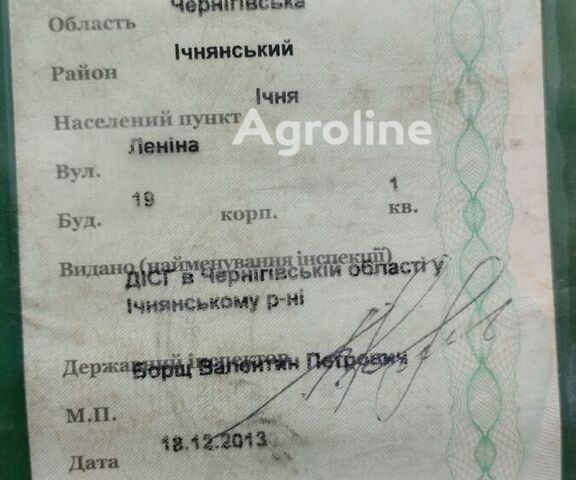 Чернігівська
Область
Ічнянський
Район
Ічня
Населений пункт
Agroline
Леніна
Вул.
19
1
Буд. корп. кв.
Видано (найменування інспекції)
ДІСГ в Чернігівській області у
Ічнянському р-ні
Державний інспектор
Борщ Валентин Петрович
М.П.
18.12.2013
Дата